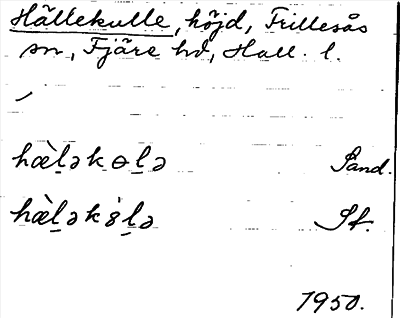 Hällekulle, höjd, Frillesås
sn, Fjäre hd, Hall. l.
hæ̀l̠əkɵl̠ə Sand.
hæ̀l̠ək l̠ə Sf.
1950.